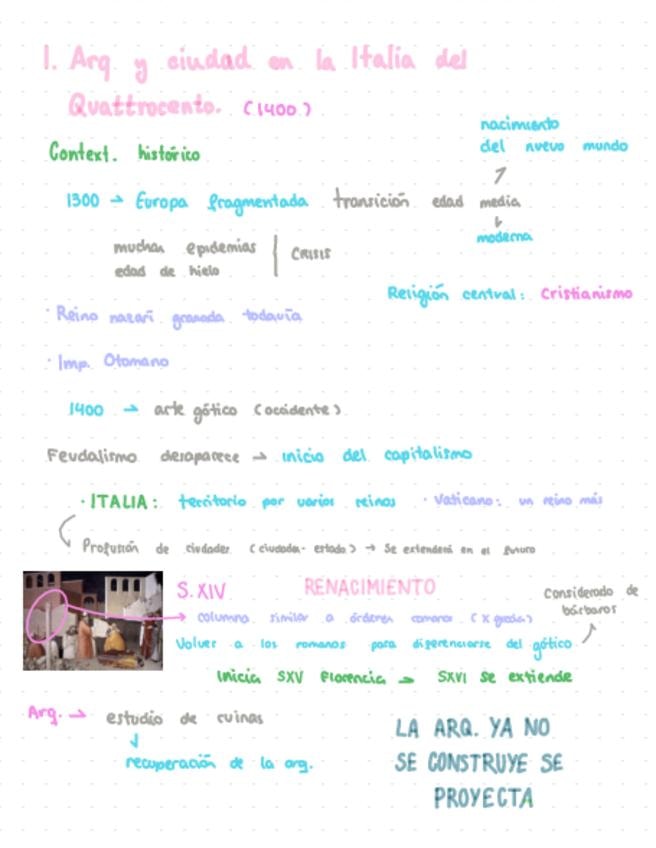 1. Arq y ciudad en la Italia del
Quattrocento. (1400)
nacimiento
del nuevo mundo
Context. histórico
1300 → Europa fragmentada transición edad media
moderna
muchas epidemias
edad de hielo
CRISIS
Religión central: Cristianismo
· Reino nazarí granada todavía
· Imp. Otomano
1400 → arte gótico (occidente)
Feudalismo desaparece → inicio del capitalismo
· ITALIA: territorio por varios reinos · Vaticano: un reino más
Profusión de ciudades (ciudades-estado) → Se extenderá en el futuro
S. XIV RENACIMIENTO
Considerado de
bárbaros
columna similar a órdenes romanos (X grecia)
Volver a los romanos para diferenciarse del gótico
Inicia SXV Florencia → SXVI se extiende
Arq. → estudio de ruinas
recuperación de la arq.
LA ARQ. YA NO
SE CONSTRUYE SE
PROYECTA